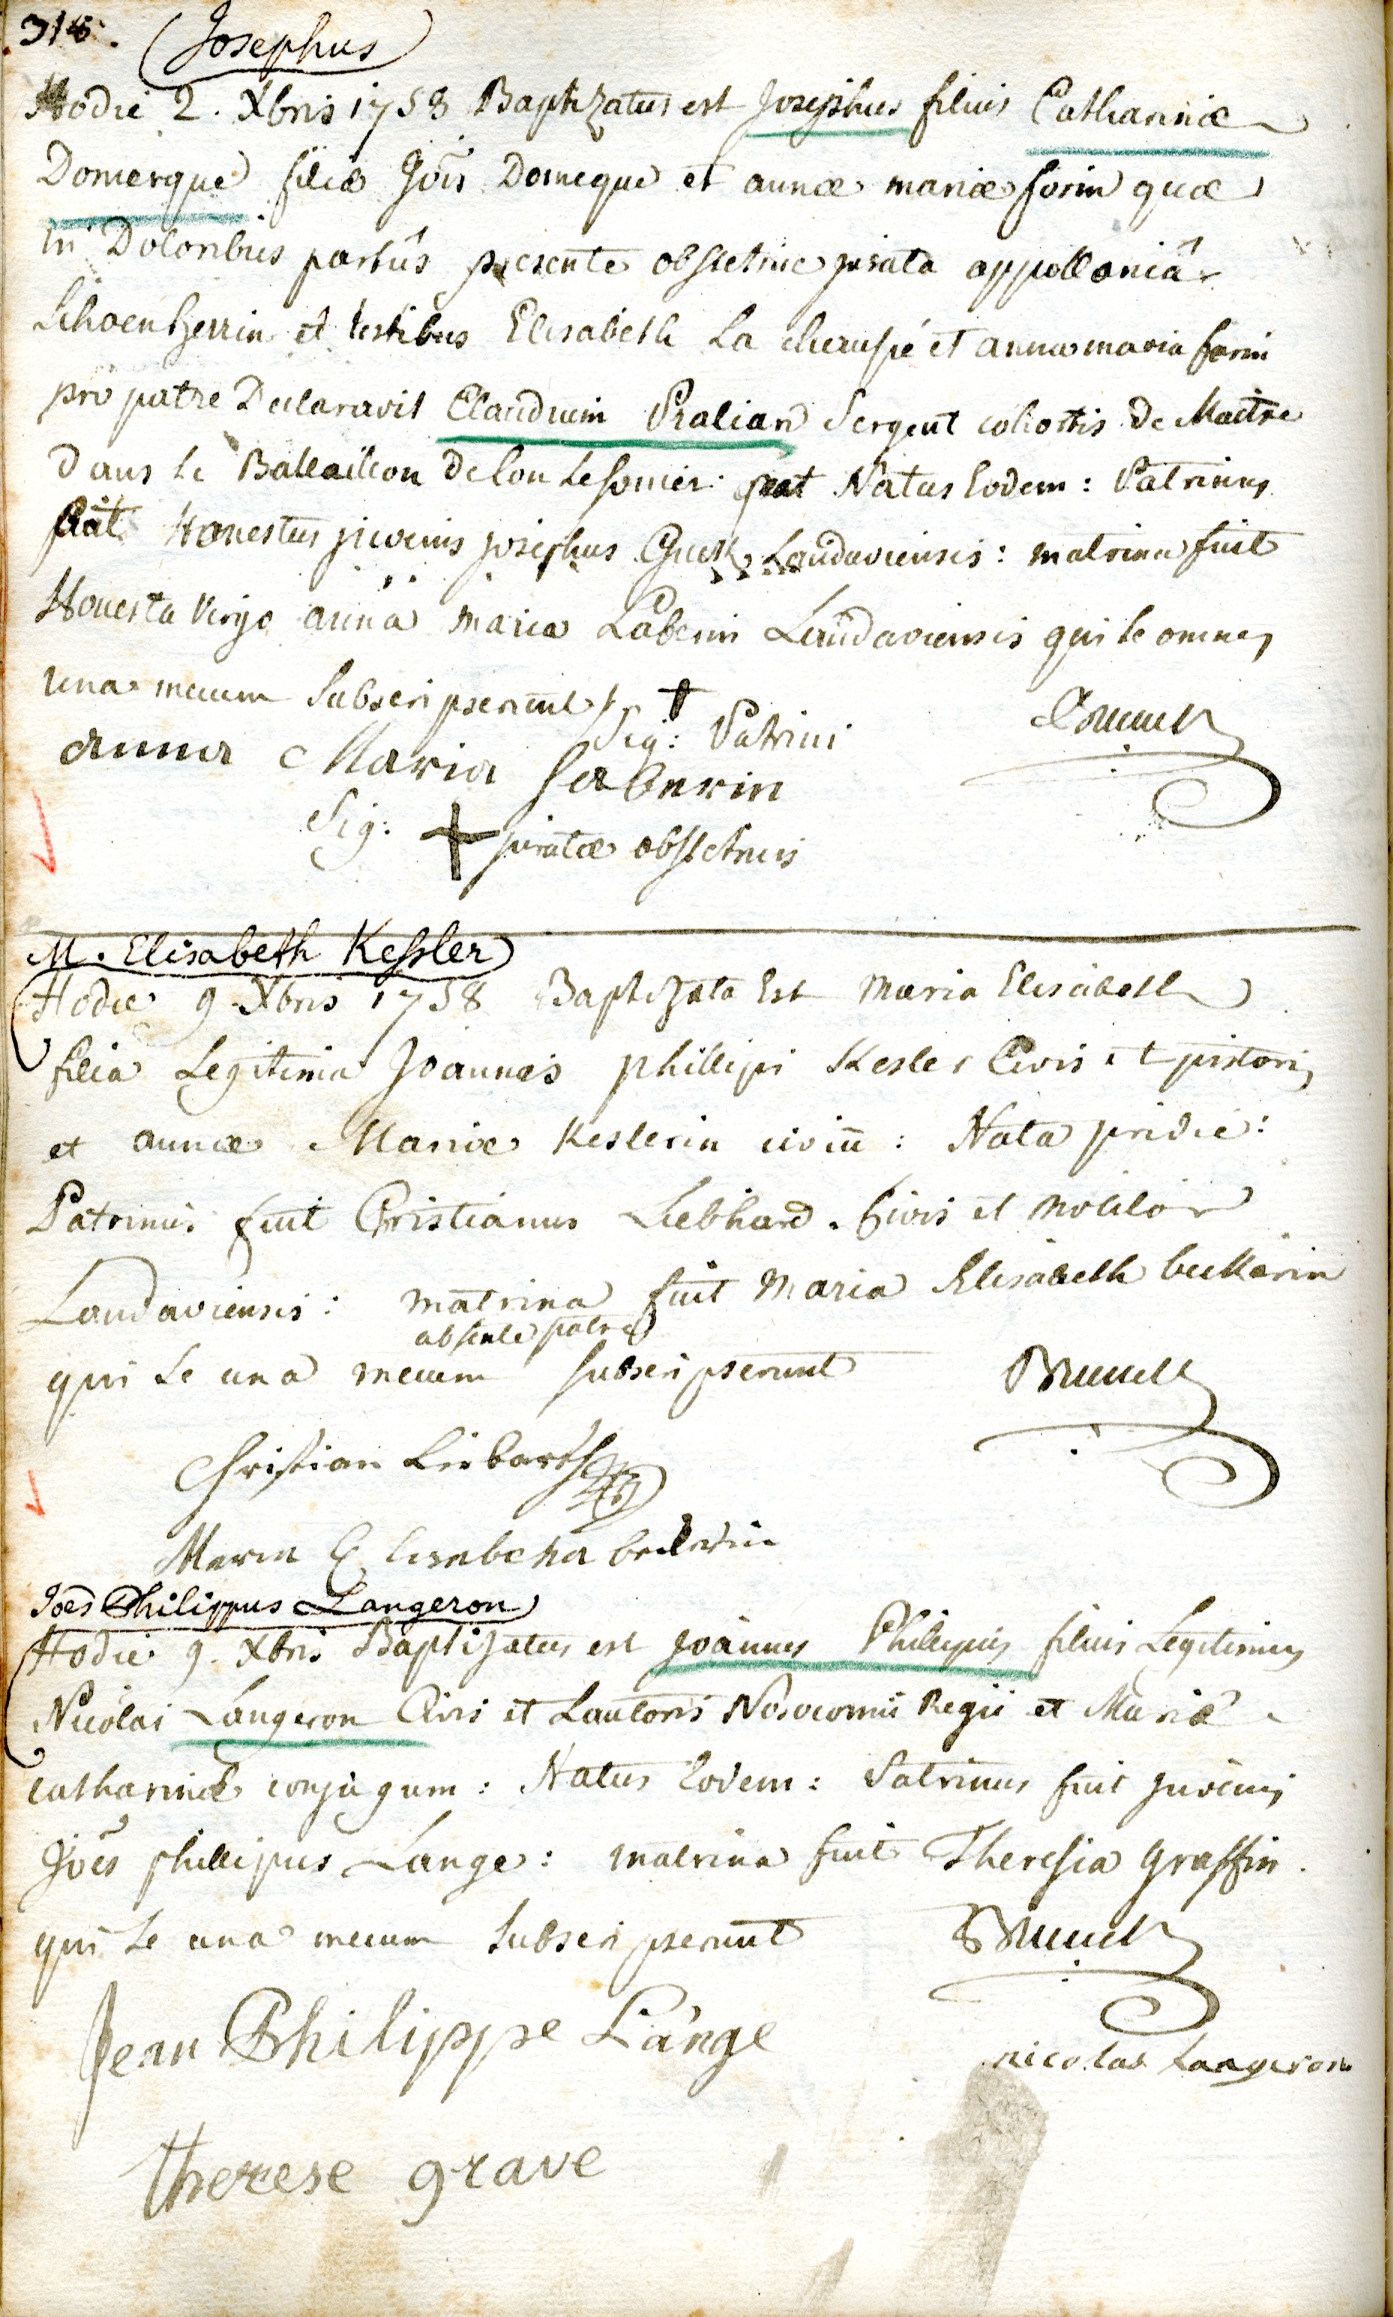 318.
Josephus
Hodie 2. Xbris 1758 Baptizatus est Josephus filius Catharinæ
Domerque filiæ Jois Domeque et annæ mariæ forin quæ
in Doloribus partûs presente obstetrice jurata appolloniâ
Schoenherrin et testibus Elisabeth La et anna maria forin
pro patre Declaravit Claudium Pralian Sergent cohortis de Maitre
Dans le Battaillon De Natus Eodem: Patrinus
fuit Honestus juvenis josephus Landaviensis: matrina fuit
Honesta virgo anna maria Laberin Landaviensis qui se omnes
una mecum Subscripserunt
Sig: † Patrini
Brunck
anna Maria Laberin
Sig: + juratæ obstetricis
M. Elisabeth Kessler
Hodie 9 Xbris 1758 Baptizata Est Maria Elisabeth
filia Legitima Joannes phillipi Kesler Civis et pistoris
et annæ Mariæ Keslerin civiū: Nata pridie:
Patrinus fuit Christianus Liebhard Civis et Molitor
Landaviensis: matrina fuit Maria Elisabeth beckerin
absente patre
qui se una mecum subscripserunt
Brunck
Christian Liebarth
Maria Elisabetha beckerin
Joes Philippus Langeron
Hodie 9. Xbris Baptizatus est joannes Phillipus filius Legitimus
Nicolai Langeron Civis et Lautoris Nosocomii Regii et Mariæ
catharinæ conjugum: Natus Eodem: Patrinus fuit juvenis
Joēs phillipus Lange: matrina fuit Theresia graffin.
qui se una mecum subscripserunt
Brunck
Jean Philippe Lange
nicolas Langeron
therese grave